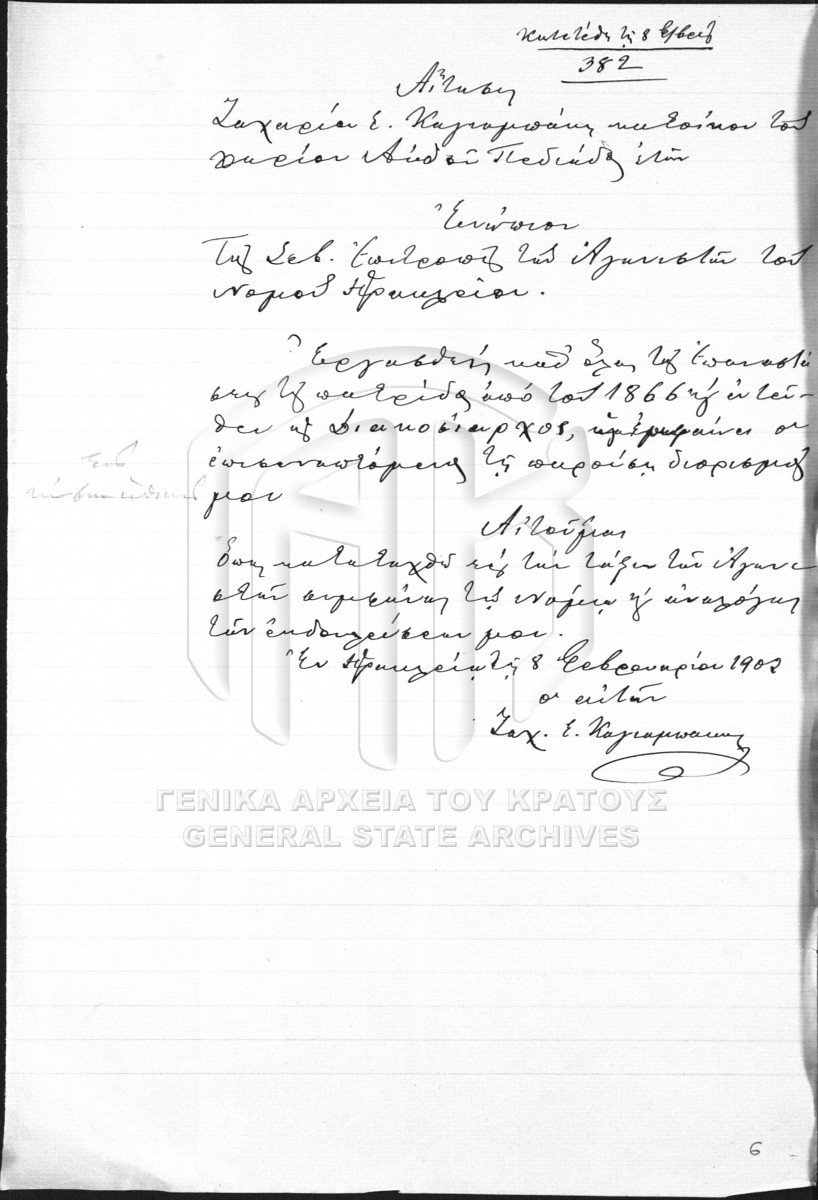 Κατετέθη τῇ 8 Φ/βρίου
382
Αἴτησις
Ζαχαρίου Ε. Καγιαμπάκη κατοίκου τοῦ
χωρίου Πεδιάδος ἐτῶν
Ἐνώπιον
Τῆς Σεβ. Ἐπιτροπῆς τῶν Ἀγωνιστῶν τοῦ
Νομοῦ Ἡρακλείου.
Ἐργασθεὶς καθ' ὅλας τὰς ἐπαναστά
σεις τῆς πατρίδος ἀπὸ τοῦ 1866 καὶ ἐντεῦ-
θεν ὡς Διακοσίαρχος, ὡς ἐμφαίνει ὁ
ἐπισυναπτόμενος τῇ παρούσῃ διορισμός
μου
Αἰτοῦμαι
ὅπως καταταχθῶ εἰς τὴν τάξιν τῶν Ἀγωνι-
στῶν συμφώνως τοῖς νόμοις καὶ ἀναλόγως
τῶν ἐκδουλεύσεών μου.
Ἐν Ἡρακλείῳ τῇ 8 Φεβρουαρίου 1902
ὁ αἰτῶν
Ζαχ. Ε. Καγιαμπάκης
ΓΕΝΙΚΑ ΑΡΧΕΙΑ ΤΟΥ ΚΡΑΤΟΥΣ
GENERAL STATE ARCHIVES
6